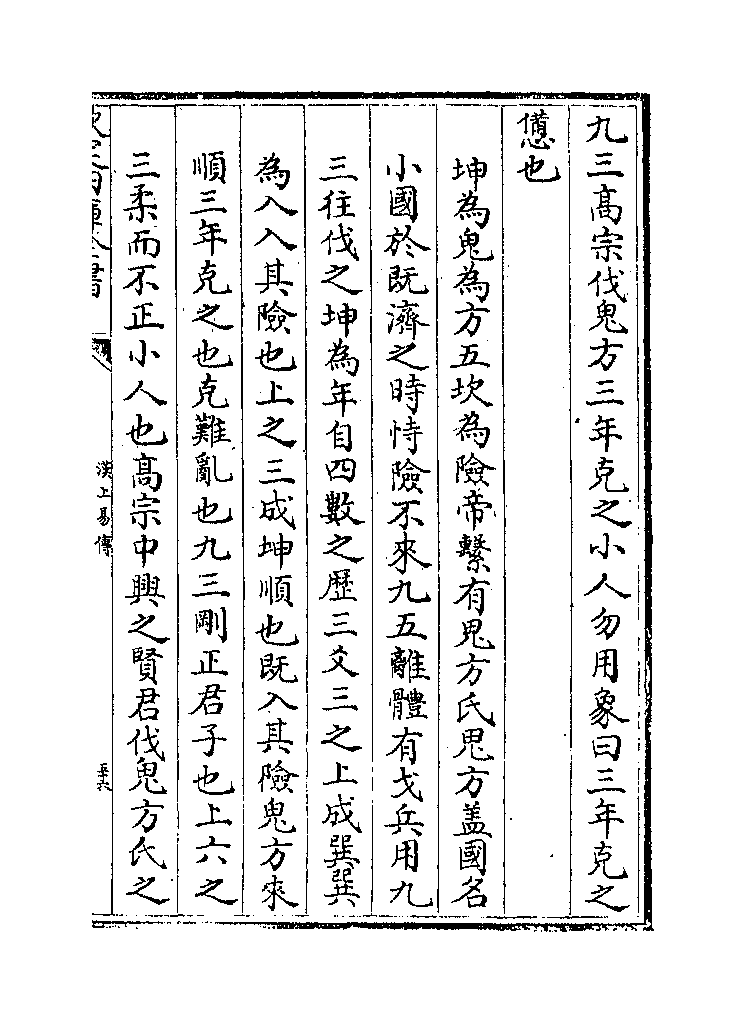 九三髙宗伐鬼方三年克之小人勿用象曰三年克之
憊也
坤為鬼為方五坎為險帝繫有鬼方氏鬼方蓋國名
小國於既濟之時恃險不來九五離體有戈兵用九
三往伐之坤為年自四數之歴三爻三之上成巽巽
為入入其險也上之三成坤順也既入其險鬼方來
順三年克之也克難亂也九三剛正君子也上六之
三柔而不正小人也髙宗中興之賢君伐鬼方氏之
漢上易傳